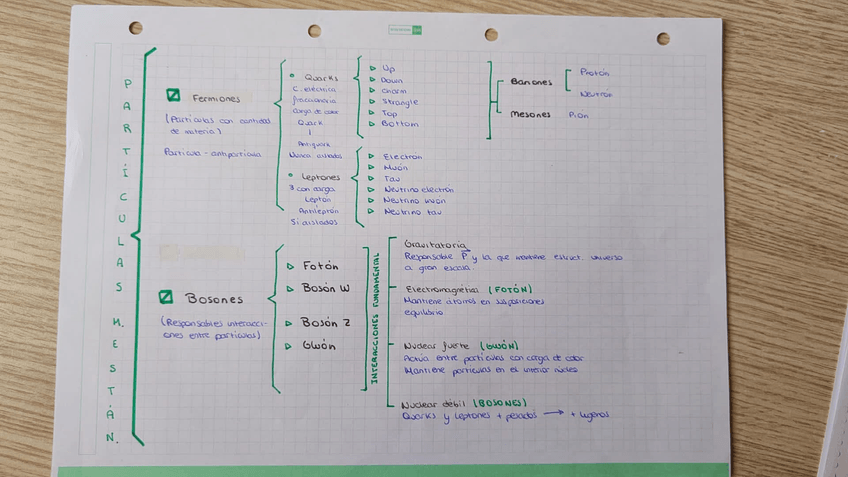 PARTÍCULAS M. ESTÁN.
Fermiones
(Partículas con cantidad
de materia)
Partícula - antipartícula
Quarks
C. eléctrica
fraccionaria
Carga de color
Quark
Antiquark
Nunca aislados
Leptones
3 con carga
Leptón
Antileptón
Si aislados
Up
Down
Charm
Strangle
Top
Bottom
Electrón
Muón
Tau
Neutrino electrón
Neutrino muon
Neutrino tau
Bariones
Protón
Neutrón
Mesones
Pion
Bosones
(Responsables interacci-
ones entre partículas)
Fotón
Bosón W
Bosón Z
Gluón
INTERACCIONES FUNDAMENTAL
Gravitatoria
Responsable P y la que mantiene estruct. universo
a gran escala.
Electromagnética (FOTÓN)
Mantiene átomos en sus posiciones
equilibrio
Nuclear fuerte (GLUÓN)
Actúa entre partículas con carga de color
Mantiene partículas en el interior núcleo
Nuclear débil (BOSONES)
Quarks y leptones + pesados → + ligeros